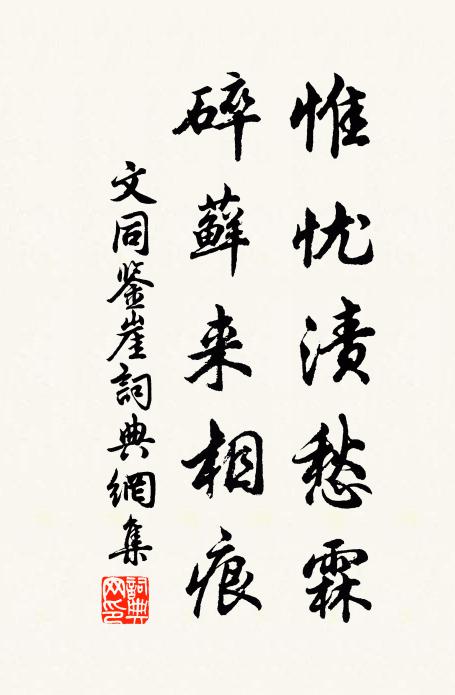 惟忧渍愁霖
碎藓来相痕
文同鉴崖詞典網集
詞典网印